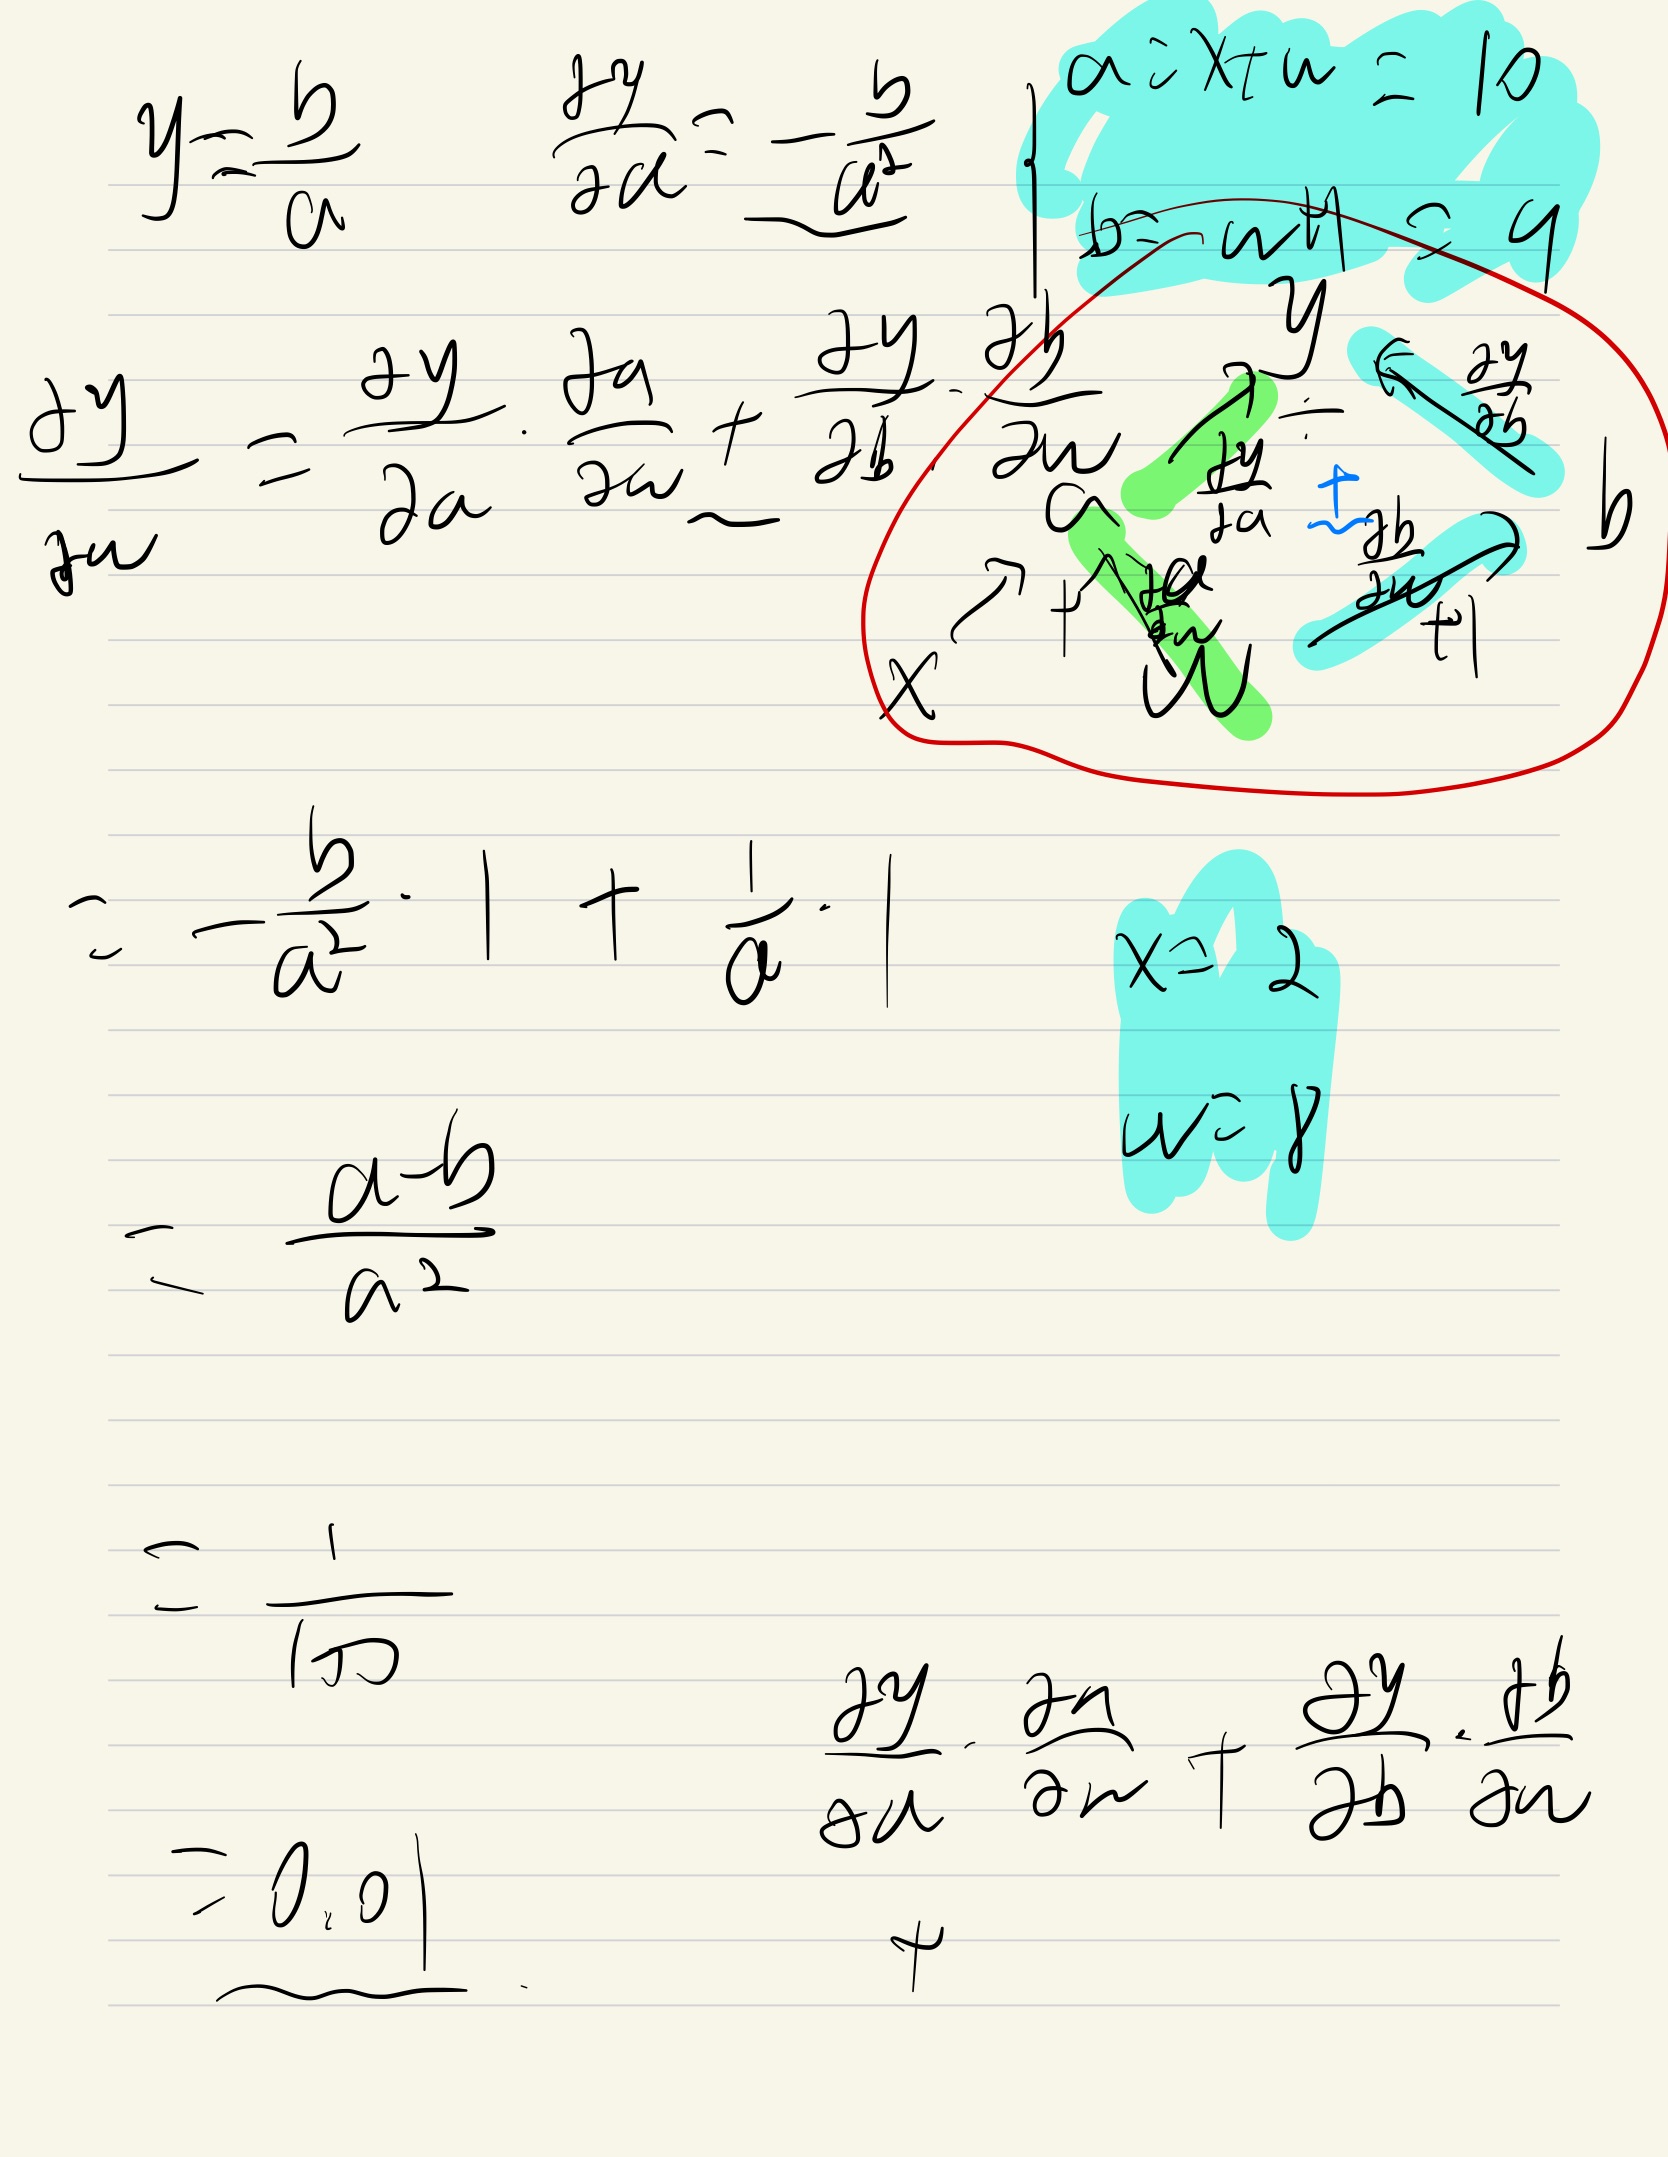 y = b/a   ∂y/∂a = -b/a²
a = x+w = 10
b = w+1 = 9
∂y/∂w = ∂y/∂a · ∂a/∂w + ∂y/∂b · ∂b/∂w
y
÷
∂y/∂a
∂y/∂b
+
a
b
+
∂a/∂w
∂b/∂w
+1
x
w
= -b/a² · 1 + 1/a · 1
x = 2
w = 8
= a-b/a²
= 1/100
∂y/∂a · ∂a/∂w + ∂y/∂b · ∂b/∂w
= 0.01
+